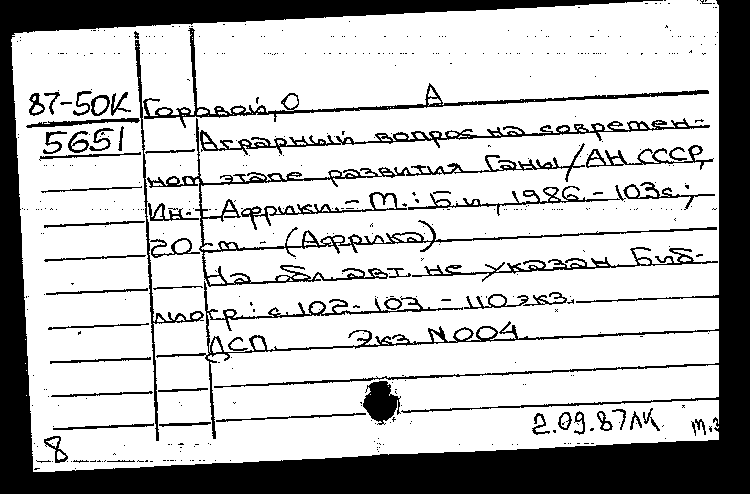 87-50К Горовой, О А
5651 Аграрный вопрос на современ-
ном этапе развития Ганы/АН СССР,
Ин-т Африки. - М.: Б.и., 1986. - 103с.;
20 см. - (Африка).
На обл. авт. не указан. Биб-
лиогр.: с. 102-103. - 110 экз.
ДСП. Экз. N004.
2.09.87ЛК
8